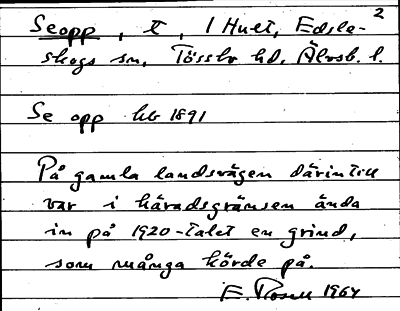 2
Seopp, t, 1 Hult, Edsle-
skogs sn, Tössbo hd, Älvsb. l.
Se opp hb 1891
På gamla landsvägen därintill
var i häradsgränsen ända
in på 1920-talet en grind,
som många körde på.
E. Rosell 1964